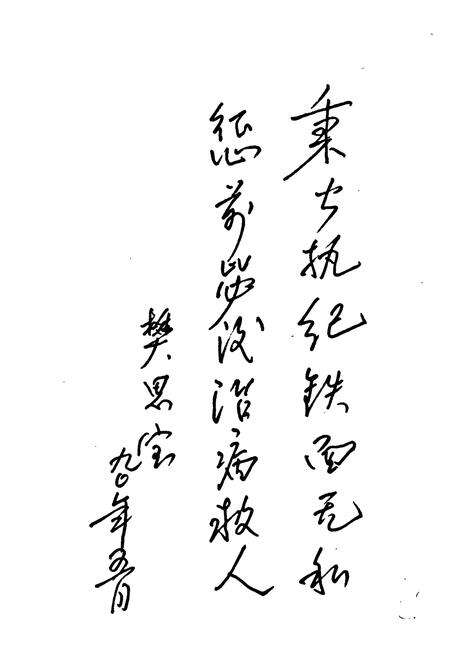 秉公执纪铁面无私
惩前毖后治病救人
樊思宝
九〇年五月